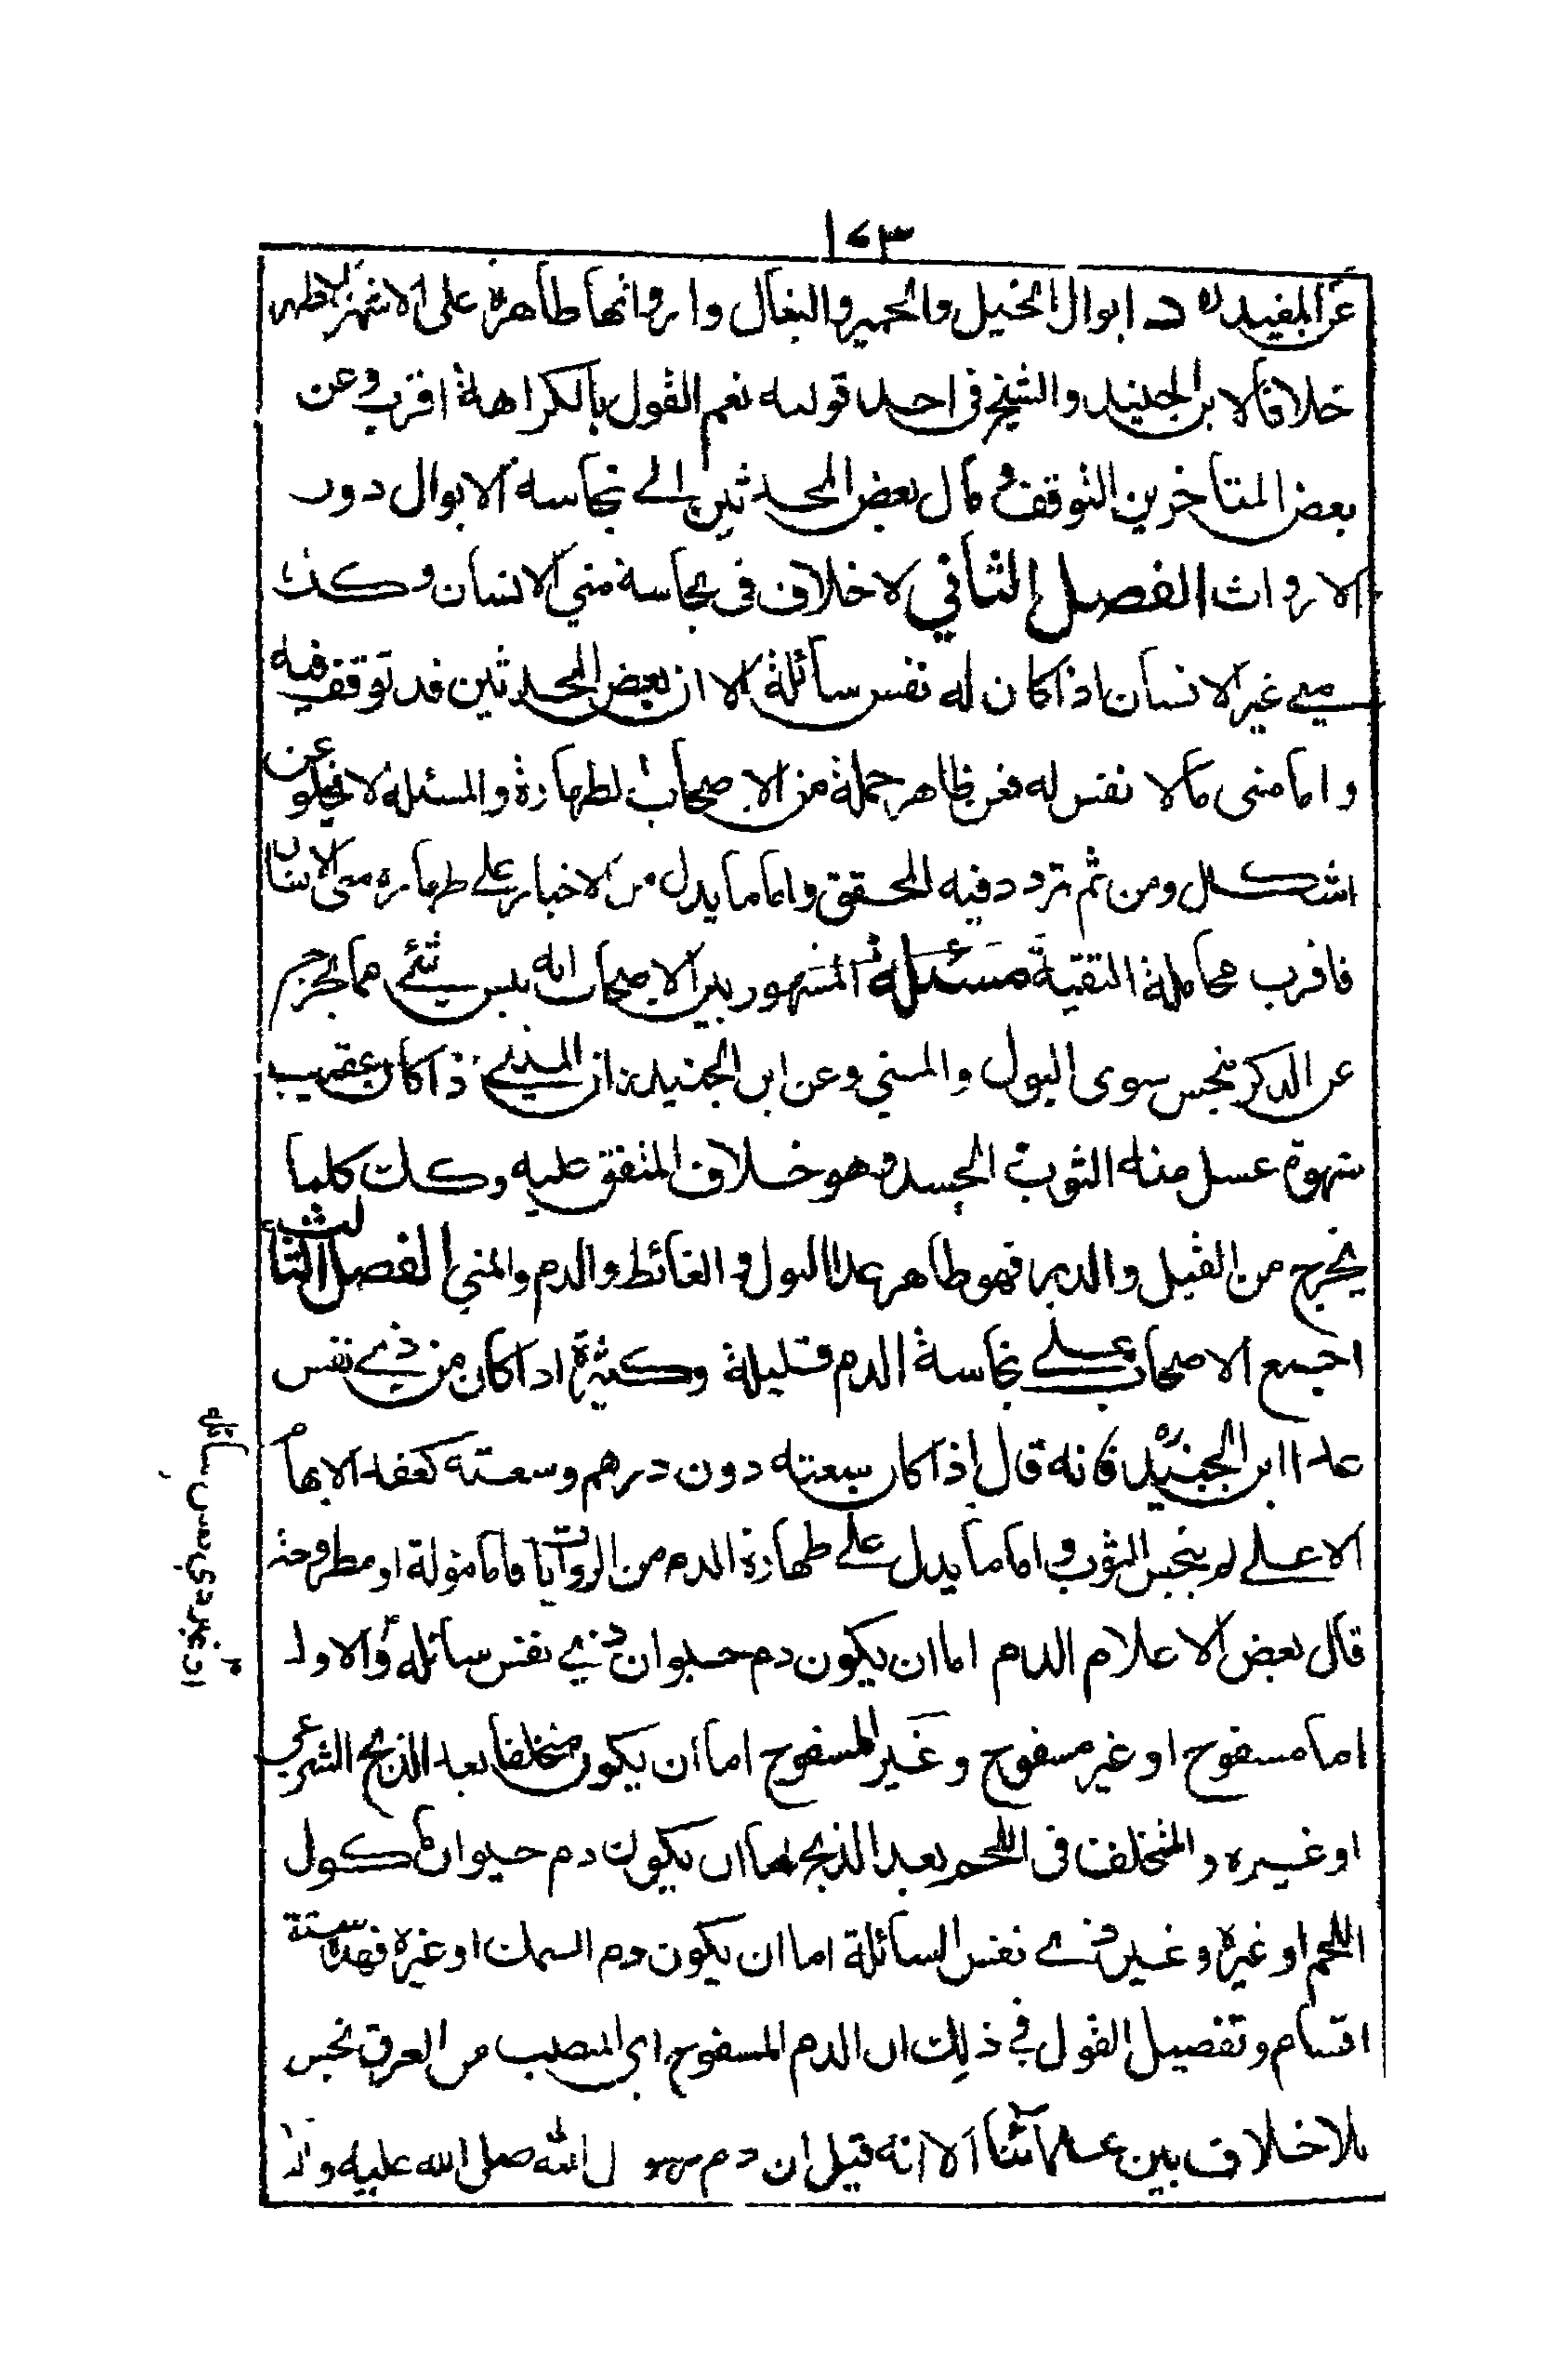 ١٧٣
عن المفيد ره د ابوال الخيل والحمير والبغال وارواثها طاهرة على الاشهر الاظهر
خلافا لابن الجنيد والشيخ فى احد قوليه نعم القول بالكراهة اقرب وعن
بعض المتاخرين التوقف و مال بعض المحدثين الى نجاسة الابوال دون
الارواث الفصل الثاني لا خلاف فى نجاسة مني الانسان وكذا
مني غير الانسان اذا كان له نفس سائلة الا ان بعض المحدثين قد توقف فيه
واما منى مالا نفس له فعن ظاهر جملة من الاصحاب الطهارة والمسئلة لا تخلو عن
اشكال ومن ثم تردد فيه المحقق واما ما يدل من الاخبار على طهارة منى الانسان
فاقرب محامله التقية مسئلة المشهور بين الاصحاب انه ليس شئ مما يخرج
عن الذكر بنجس سوى البول والمني وعن ابن الجنيد ان المذى اذا كان بعقيب
شهوة غسل منه الثوب الجسد وهو خلاف المتفق عليه وكذا كلما
يخرج من القبل والدبر فهو طاهر عدا البول و الغائط والدم والمني الفصل الثالث
اجمع الاصحاب على نجاسة الدم قليلة وكثيرة اذا كان من ذي نفس
عدا ابن الجنيد ره فانه قال اذا كان سعته دون درهم وسعته كعقد الابهام
الاعلى لم ينجس الثوب و اما ما يدل على طهارة الدم من الروايات فاما مؤلة او مطروحة
قال بعض الاعلام الدم اما ان يكون دم حيوان ذي نفس سائلة والاول
اما مسفوح او غير مسفوح و غير المسفوح اما ان يكون متخلفا بعد الذبح الشرعي
او غيره والمتخلف فى اللحم بعد الذبح اما ان يكون دم حيوان ماكول
اللحم او غيره و غير ذي نفس السائلة اما ان يكون دم السمك او غيره فهذه ستة
اقسام وتفصيل القول في ذلك ان الدم المسفوح اي المنصب من العرق نجس
بلا خلاف بين علمائنا الا انه قيل ان دم رسول الله صلى الله عليه واله
او غير ذي نفس سائلة